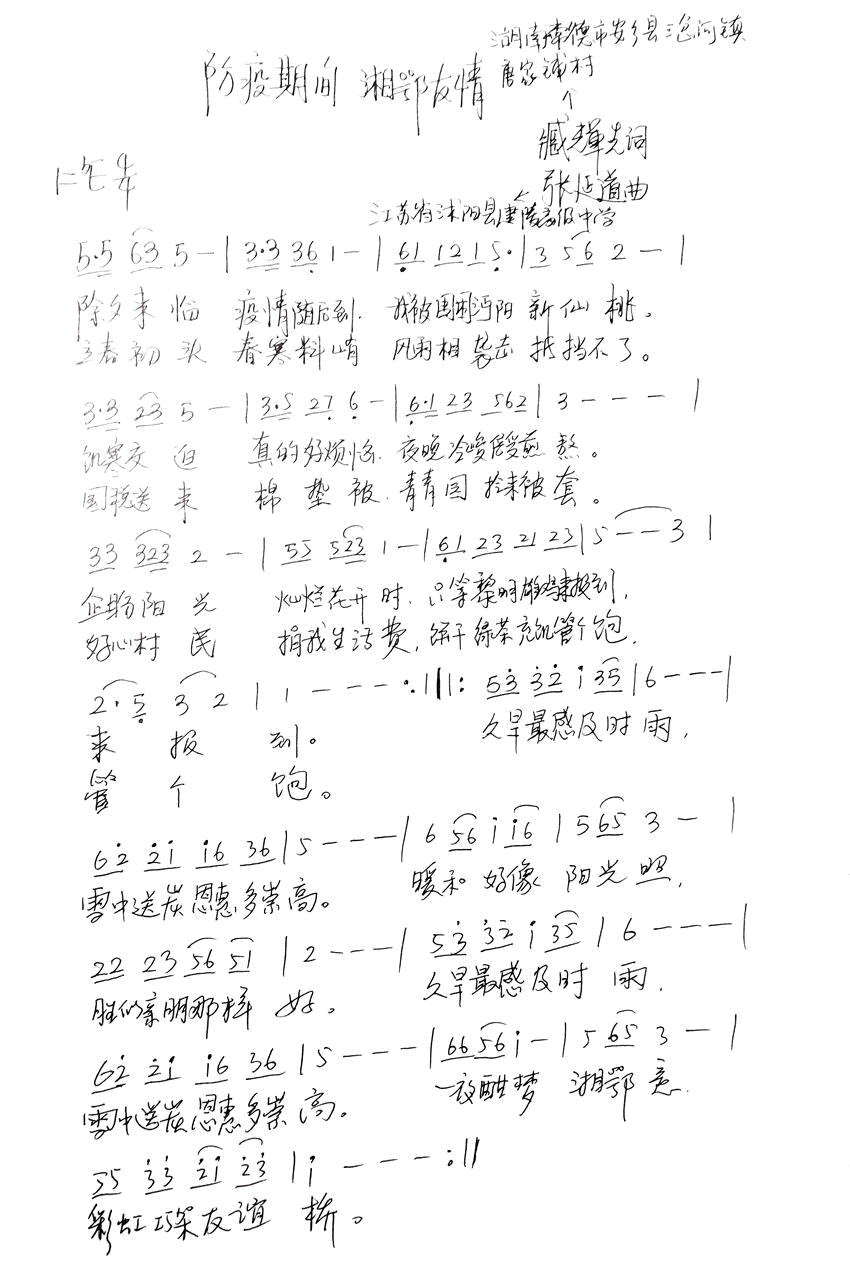 湖南常德市安乡县 河镇
防疫期间 湘鄂友情 唐家铺村
臧辉先词
张延道曲
江苏省沭阳县建陵高级中学
5·5 63 5 - | 3·3 36 1 - | 61 12 1 5· | 3 56 2 - - |
除夕来临 疫情随后到. 我被围困沔阳 新仙桃。
立春初头 春寒料峭 风雨相袭击 抵挡不了。
3·3 23 5 - | 3·5 27 6 - | 6·1 23 562 | 3 - - - |
饥寒交迫 真的好烦恼. 夜晚冷峻受煎熬。
国税送来 棉垫被. 青青国 被套。
33 323 2 - | 55 523 1 - | 61 23 21 23 | 5 - - 3 |
企盼阳光 灿烂花开时. 只等黎明雄鸡来报到,
好心村民 捐我生活费, 饼干绿茶充饥管个饱,
2·5 3 2 | 1 - - - :||: 53 32 i 35 | 6 - - - |
来报到。 久旱最感及时雨,
管个饱。
62 2i i6 36 | 5 - - - | 6 56 i i6 | 5 65 3 - |
雪中送炭恩惠多崇高。 暖和好像 阳光照,
22 23 56 51 | 2 - - - | 53 32 i 35 | 6 - - - |
胜似亲朋那样好。 久旱最感及时雨,
62 2i i6 36 | 5 - - - | 66 56 i - | 5 65 3 - |
雪中送炭恩惠多崇高。 一夜酣梦 湘鄂意.
55 33 2i 23 | i - - - :||
彩虹巧架友谊桥。